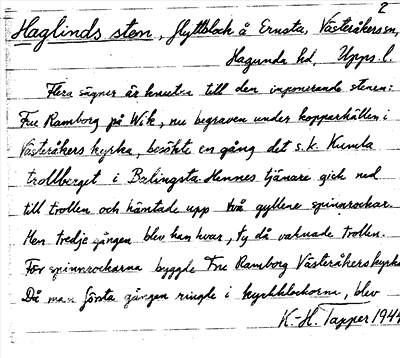 2
Haglinds sten, flyttblock å Ernsta, Västeråkers sn,
Hagunda hd, Upps. l.
Flera sägner är knutna till den imponerande stenen:
Fru Ramborg på Wik, nu begraven under kopparhällen i
Västeråkers kyrka, besökte en gång det s.k. Kumla
trollberget i Balingsta. Hennes tjänare gick ned
till trollen och hämtade upp två gyllene spinnrockar.
Men tredje gången blev han kvar, ty då vaknade trollen.
För spinnrockarna byggde Fru Ramborg Västeråkers kyrka
Då man första gången ringde i kyrkklockorna, blev
K.-H. Tapper 194